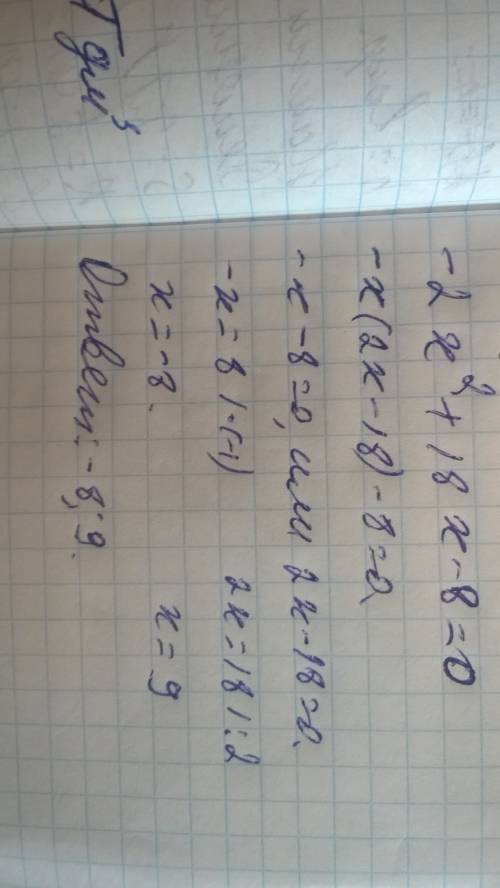 -2x²+18x-8=0
-x(2x-18)-8=0
-x-8=0, или 2x-18=0.
-x=8 |·(-1) 2x=18 |:2
x=-8. x=9
Ответ: -8; 9.